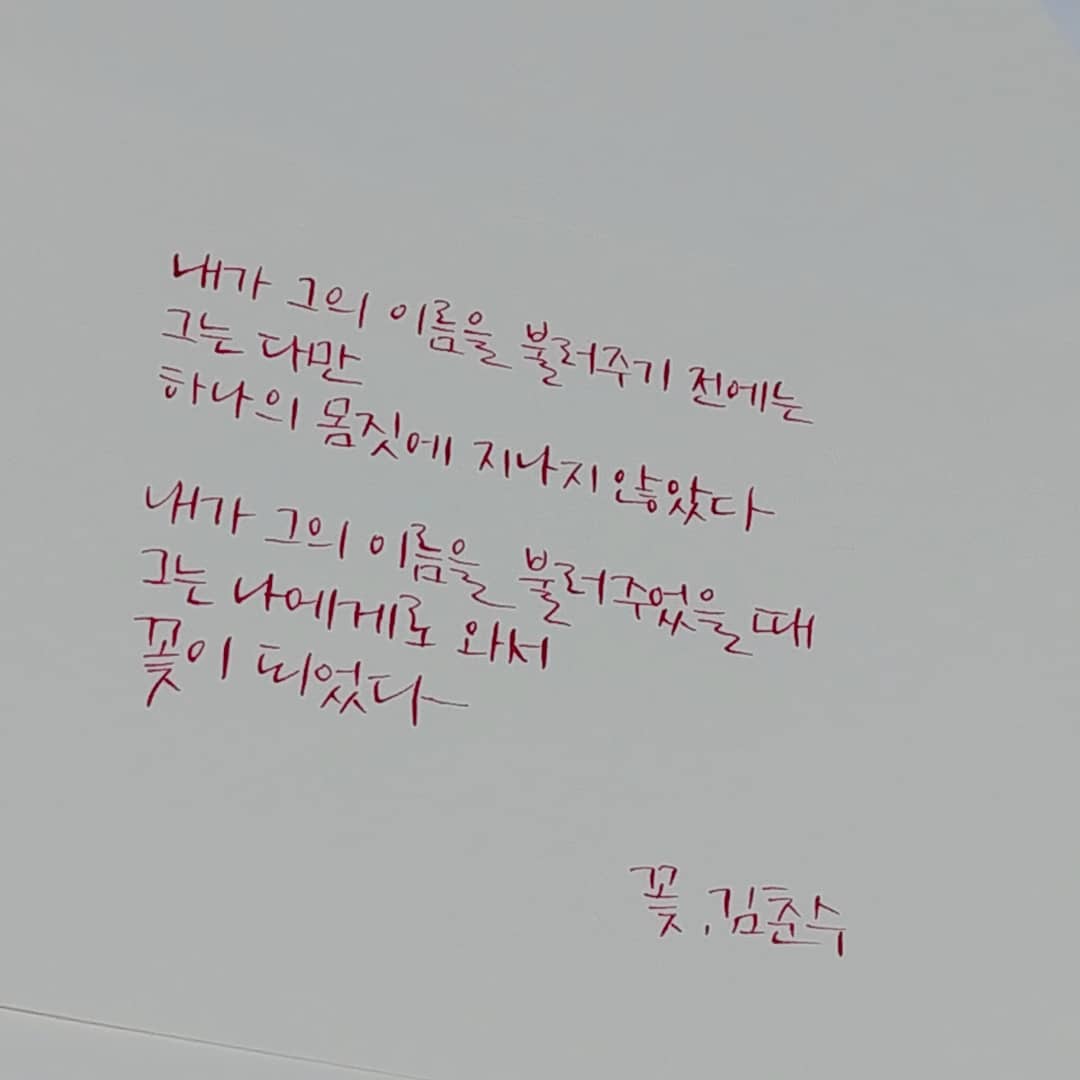 내가 그의 이름을 불러주기 전에는
그는 다만
하나의 몸짓에 지나지 않았다
내가 그의 이름을 불러주었을 때
그는 나에게로 와서
꽃이 되었다
꽃, 김춘수